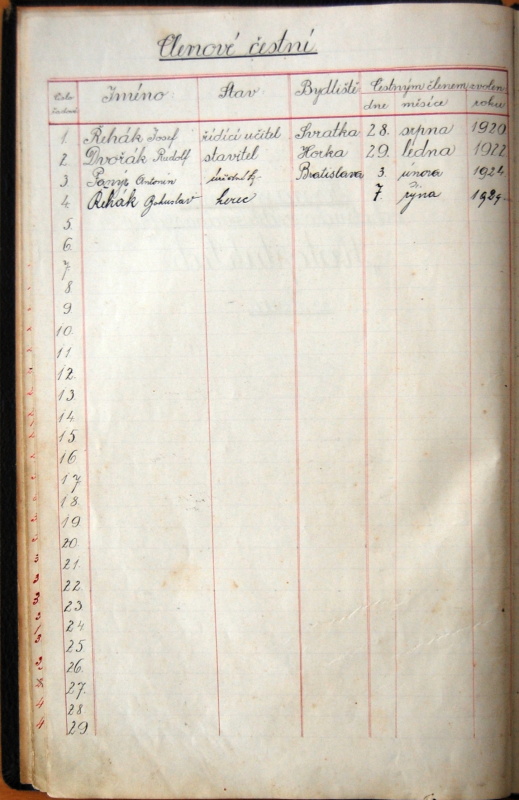 Členové čestní
Číslo Jméno Stav Bydliště Čestným členem zvolen
dne měsíce roku
1. Řehák Josef řídící učitel Svratka 28. srpna 1920
2. Dvořák Rudolf stavitel Horka 29. ledna 1922
3 Antonín Bratislava 3. února 1924
4 Řehák Bohuslav herec 7. října 1929.
5.
6.
7.
8
9.
10.
11
12.
13
14
15
16
17
18.
19
20.
21.
22
23
24
25.
26.
27.
28
29